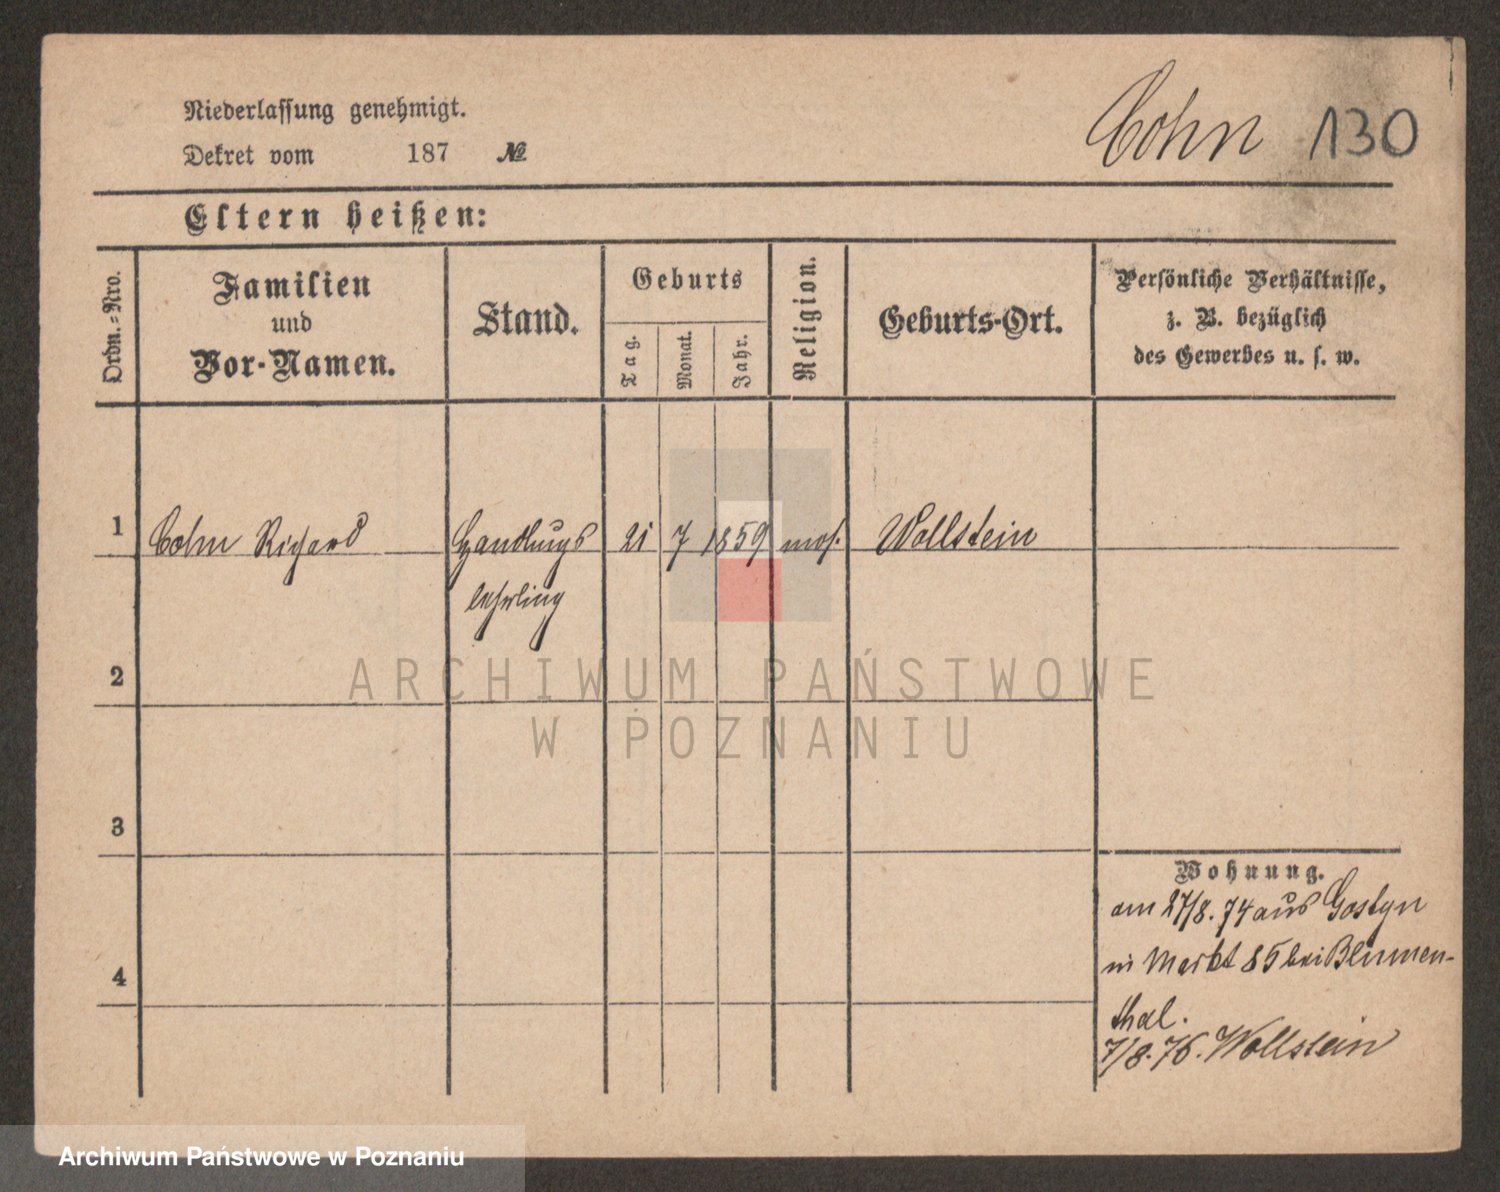 Niederlassung genehmigt.
Dekret vom 187 №
Cohn 130
Eltern heißen:
Ordn.-Nro.
Familien
und
Vor-Namen.
Stand.
Geburts
Tag.
Monat.
Jahr.
Religion.
Geburts-Ort.
Persönliche Verhältnisse,
z. B. bezüglich
des Gewerbes u. s. w.
1 Cohn Richard Handlungs 21 7 1859 mos. Wollstein
lehrling
2
3
4
Wohnung.
am 27/8. 74 aus Gostyn
in Markt 85 bei Blumen-
thal.
7/8. 76. Wollstein
ARCHIWUM PAŃSTWOWE
W POZNANIU
Archiwum Państwowe w Poznaniu